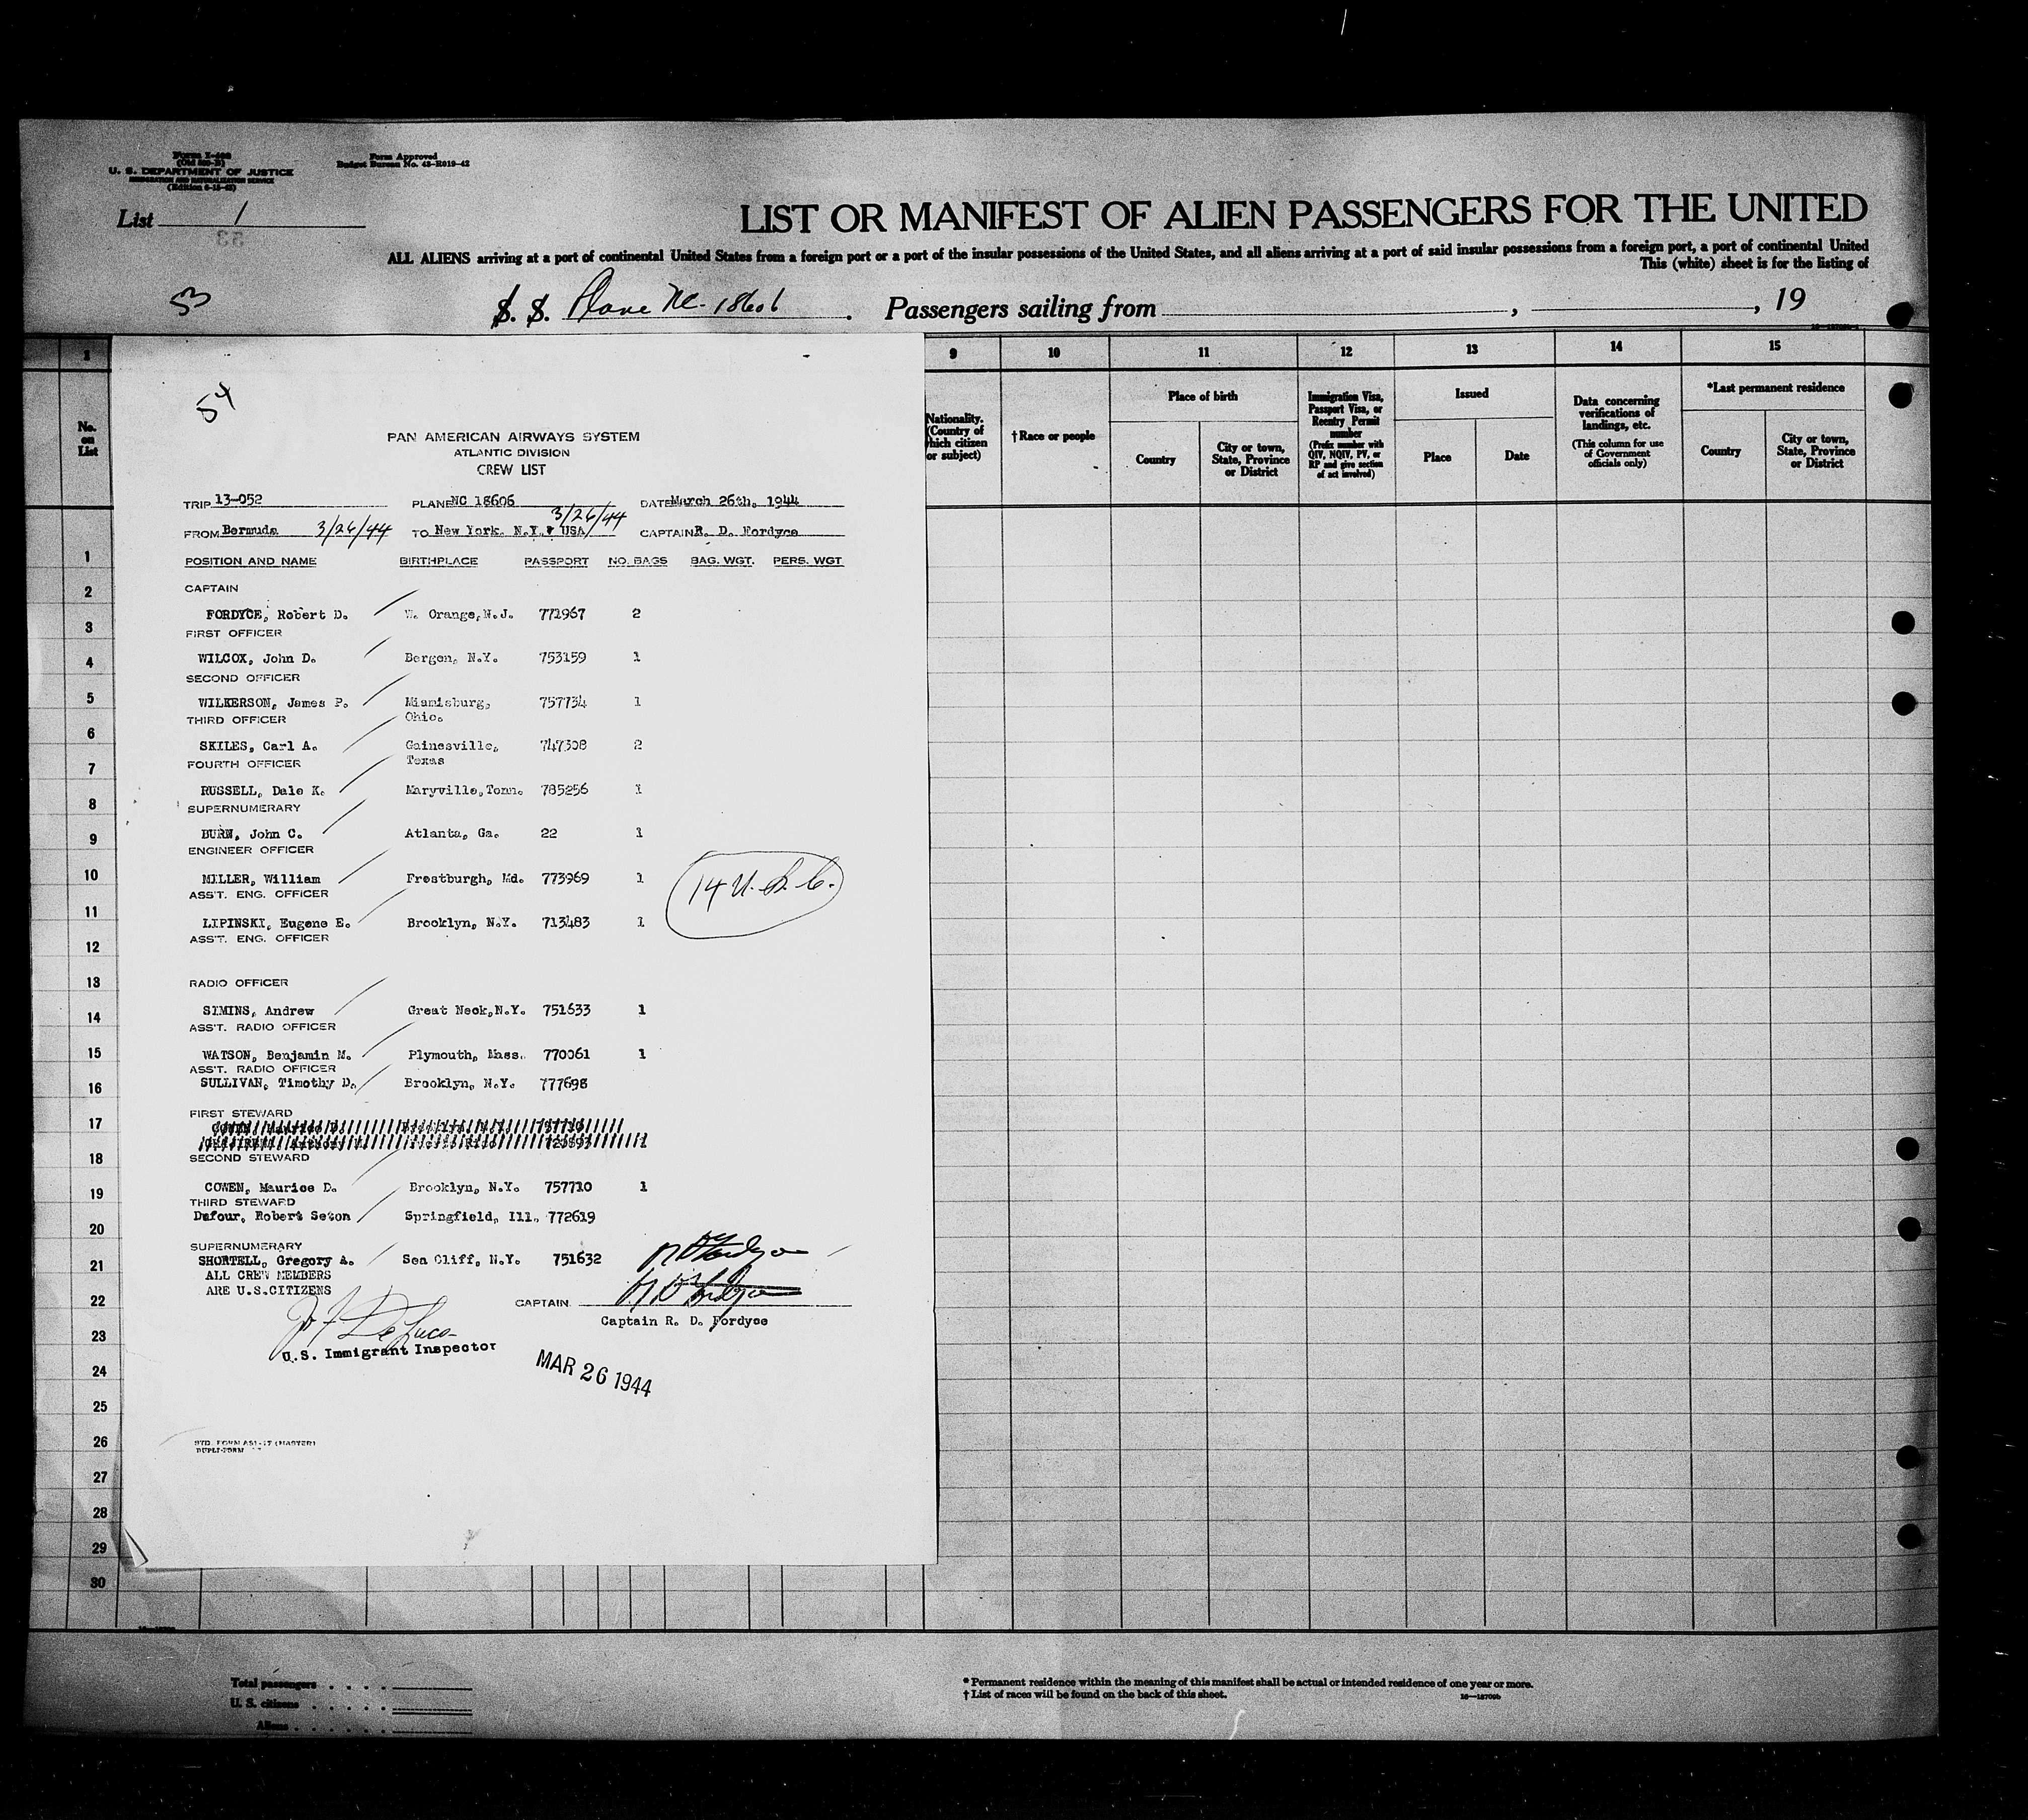 U. S. DEPARTMENT OF JUSTICE
IMMIGRATION AND NATURALIZATION SERVICE
Form Approved
Budget Bureau No. 43-R019-42
List 1
53
LIST OR MANIFEST OF ALIEN PASSENGERS FOR THE UNITED
ALL ALIENS arriving at a port of continental United States from a foreign port or a port of the insular possessions of the United States, and all aliens arriving at a port of said insular possessions from a foreign port, a port of continental United
This (white) sheet is for the listing of
53
S. S. Plane NC-18606. Passengers sailing from , , 19
1 9 10 11 12 13 14 15
No. on List
Nationality. (Country of which citizen or subject)
† Race or people
Place of birth
Country
City or town, State, Province or District
Immigration Visa, Passport Visa, or Reentry Permit number
(Prefix number with QIV, NQIV, PV, or RP and give section of act involved)
Issued
Place
Date
Data concerning verifications of landings, etc.
(This column for use of Government officials only)
*Last permanent residence
Country
City or town, State, Province or District
54
PAN AMERICAN AIRWAYS SYSTEM
ATLANTIC DIVISION
CREW LIST
TRIP 13-052 PLANE NC 18606 DATE March 26th, 1944
FROM Bermuda 3/26/44 TO New York, N.Y. USA 3/26/44 CAPTAIN R. D. Fordyce
POSITION AND NAME BIRTHPLACE PASSPORT NO. BAGS BAG. WGT. PERS. WGT
CAPTAIN
FORDYCE, Robert D. W. Orange, N.J. 771967 2
FIRST OFFICER
WILCOX, John D. Bergen, N.Y. 753159 1
SECOND OFFICER
WILKERSON, James P. Miamisburg, 757734 1
THIRD OFFICER Ohio.
SKILES, Carl A. Gainesville, 747308 2
FOURTH OFFICER Texas
RUSSELL, Dale K. Maryville, Tenn. 785256 1
SUPERNUMERARY
BURN, John C. Atlanta, Ga. 22 1
ENGINEER OFFICER
MILLER, William Frostburgh, Md. 773969 1
ASS'T. ENG. OFFICER
14 U.S.C.
LIPINSKI, Eugene E. Brooklyn, N.Y. 713483 1
ASS'T. ENG. OFFICER
RADIO OFFICER
SIMINS, Andrew Great Neck, N.Y. 751633 1
ASS'T. RADIO OFFICER
WATSON, Benjamin M. Plymouth, Mass. 770061 1
ASS'T. RADIO OFFICER
SULLIVAN, Timothy D. Brooklyn, N.Y. 777698
FIRST STEWARD
COWEN, Maurice D. Brooklyn, N.Y. 757710
SECOND STEWARD
COWEN, Maurice D. Brooklyn, N.Y. 757710 1
THIRD STEWARD
Dufour, Robert Seton Springfield, Ill. 772619
SUPERNUMERARY
SHORTELL, Gregory A. Sea Cliff, N.Y. 751632
ALL CREW MEMBERS
ARE U.S.CITIZENS
R D Fordyce
R D Fordyce
CAPTAIN
Captain R. D. Fordyce
U.S. Immigrant Inspector
MAR 26 1944
STD. FORM AS1-17 (MASTER)
DUPLI-FORM
1
2
3
4
5
6
7
8
9
10
11
12
13
14
15
16
17
18
19
20
21
22
23
24
25
26
27
28
29
30
Total passengers
U. S. citizens
Aliens
* Permanent residence within the meaning of this manifest shall be actual or intended residence of one year or more.
† List of races will be found on the back of this sheet.